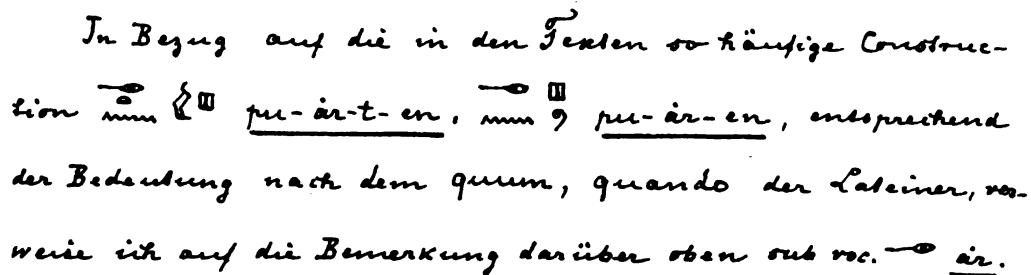 In Bezug auf die in den Texten so häufige Construc-
tion pu-ȧr-t-en, pu-ȧr-en, entsprechend
der Bedeutung nach dem quum, quando der Lateiner, ver-
weise ich auf die Bemerkung darüber oben sub voc. ȧr.